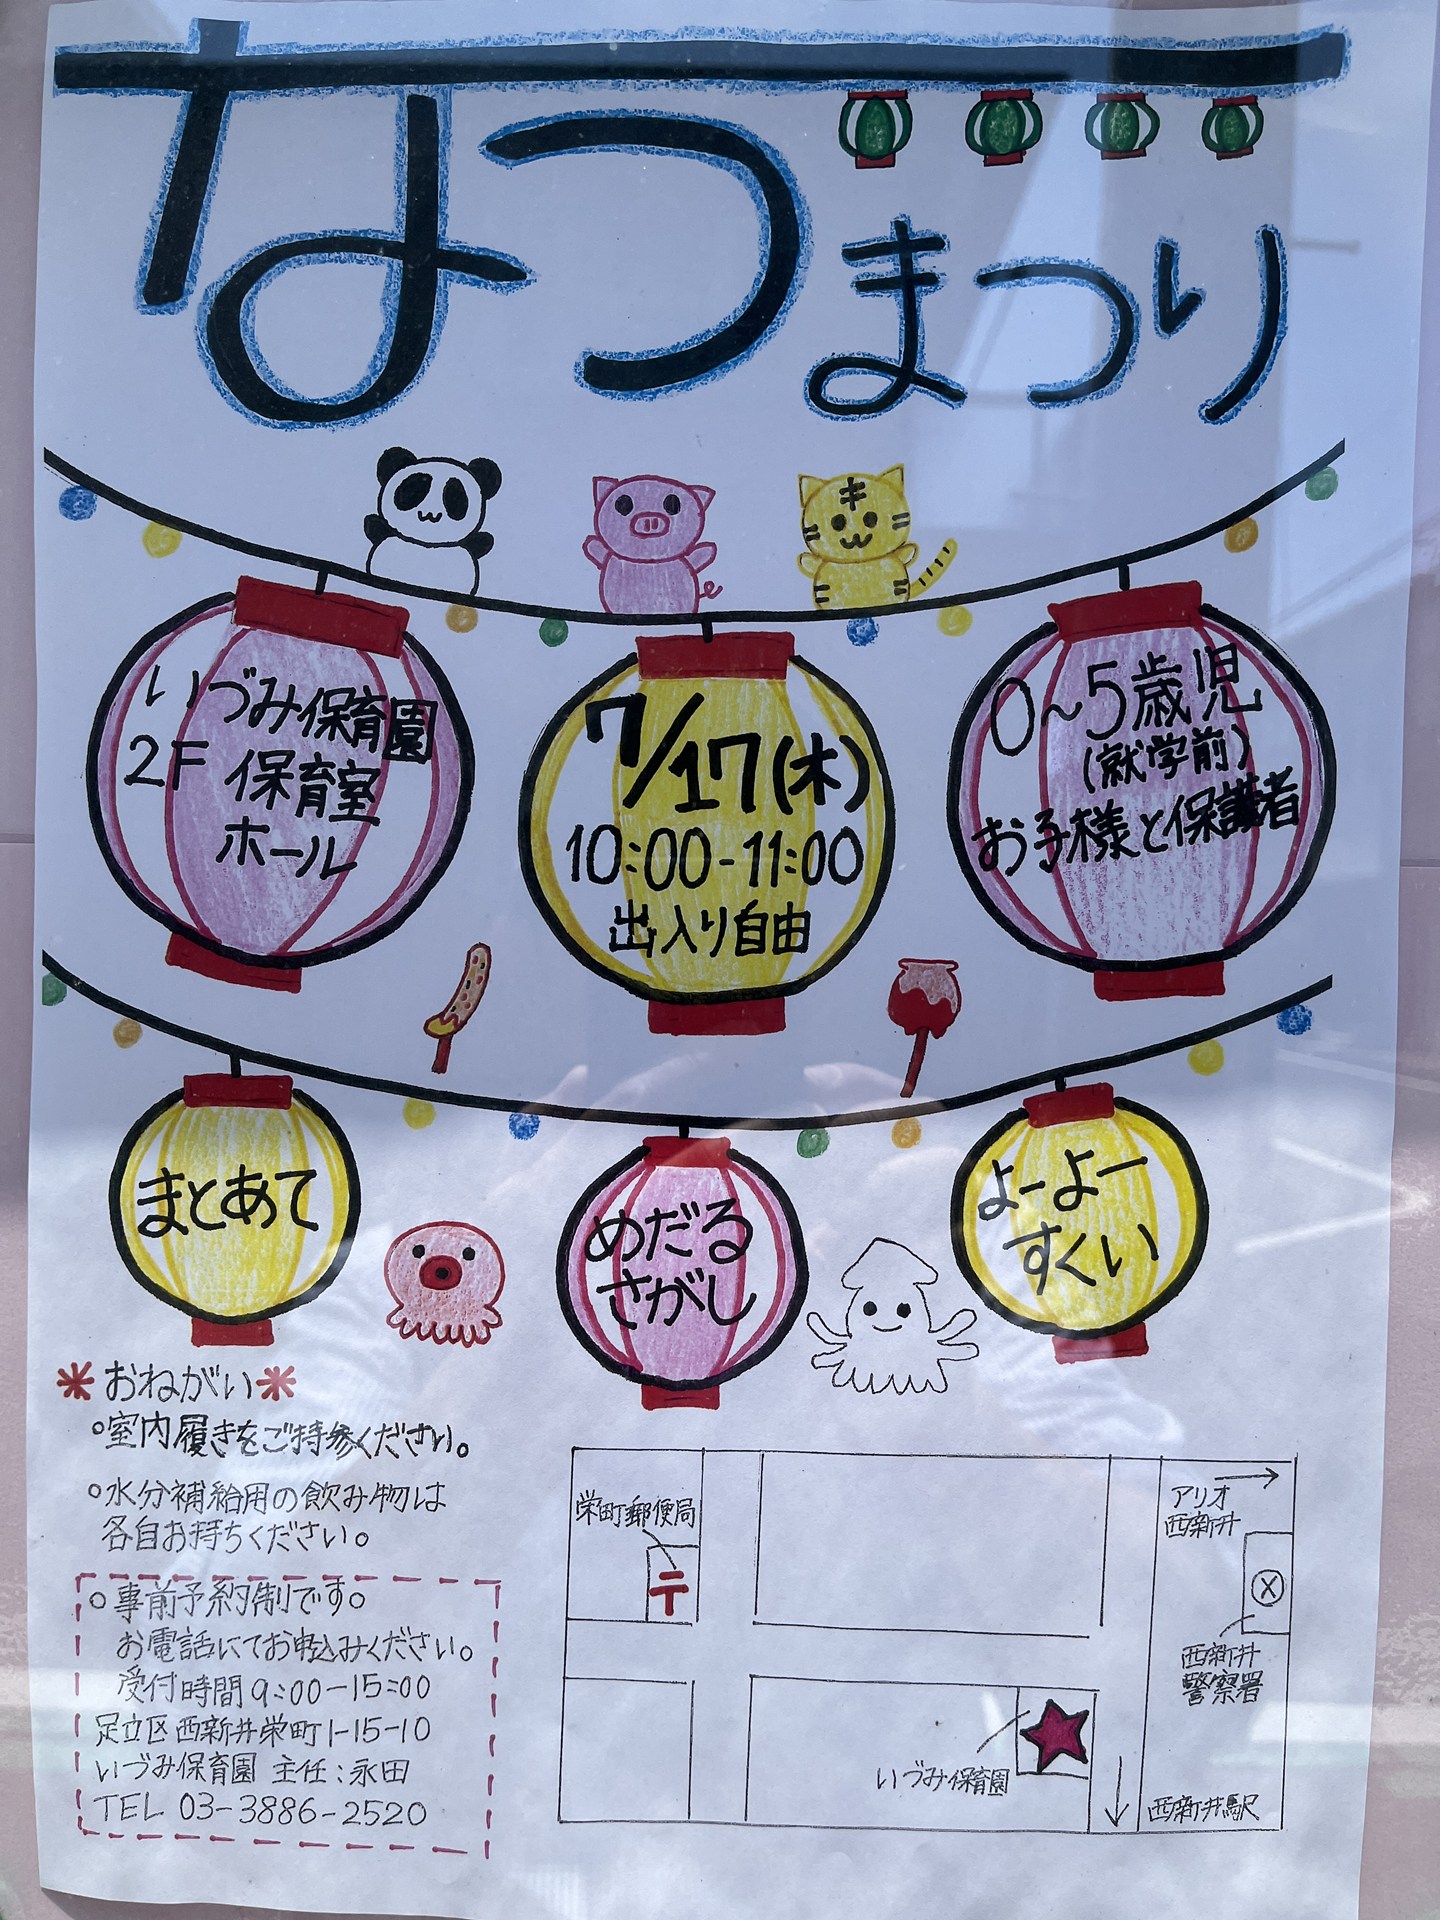 なつまつり
いづみ保育園
2F 保育室
ホール
7/17(木)
10:00-11:00
出入り自由
0～5歳児
(就学前)
お子様と保護者
まとあて
めだる
さがし
よーよー
すくい
＊おねがい＊
○室内履きをご持参ください。
○水分補給用の飲み物は
各自お持ちください。
○事前予約制です。
お電話にてお申込みください。
受付時間9:00-15:00
足立区西新井栄町1-15-10
いづみ保育園 主任:永田
TEL 03-3886-2520
栄町郵便局
〒
アリオ
西新井
→
X
西新井
警察署
いづみ保育園
↓
西新井駅